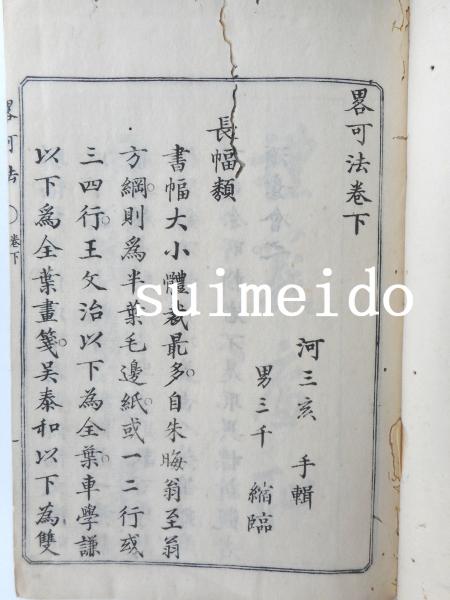 畧可法卷下
河三亥 手輯
男三千 縮臨
長幅類
書幅大小體裁最多自朱晦翁至翁
方綱則爲半葉毛邊紙或一二行或
三四行王文治以下為全葉車學謙
以下爲全葉畫箋吴泰和以下為雙
畧可法 卷下
suimeido